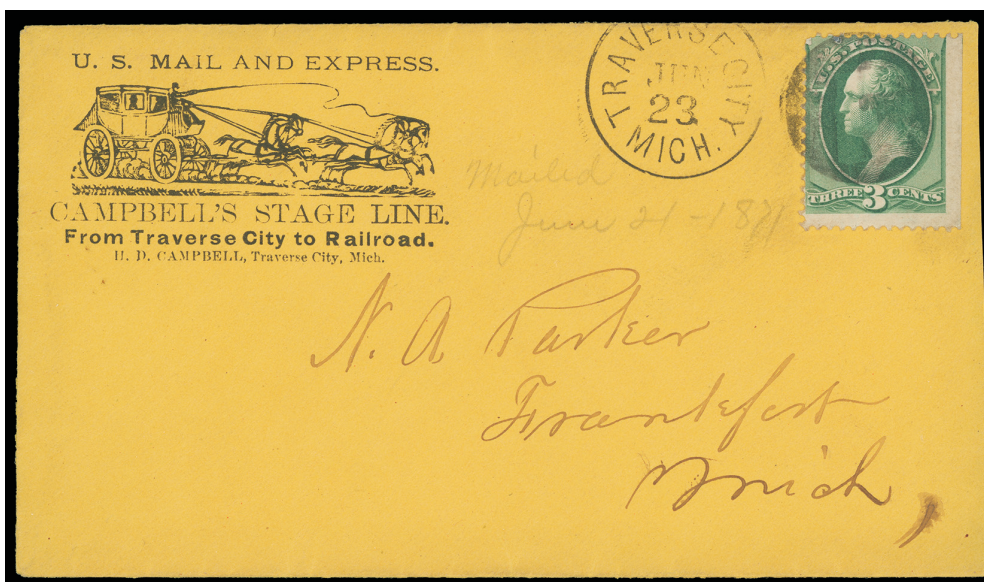 U. S. MAIL AND EXPRESS.
CAMPBELL'S STAGE LINE.
From Traverse City to Railroad.
H. D. CAMPBELL, Traverse City, Mich.
TRAVERSE CITY
JUN
23
MICH.
U.S. POSTAGE
THREE 3 CENTS
Mailed
June 21 -
N. A. Parker
Frankfort
Mich,